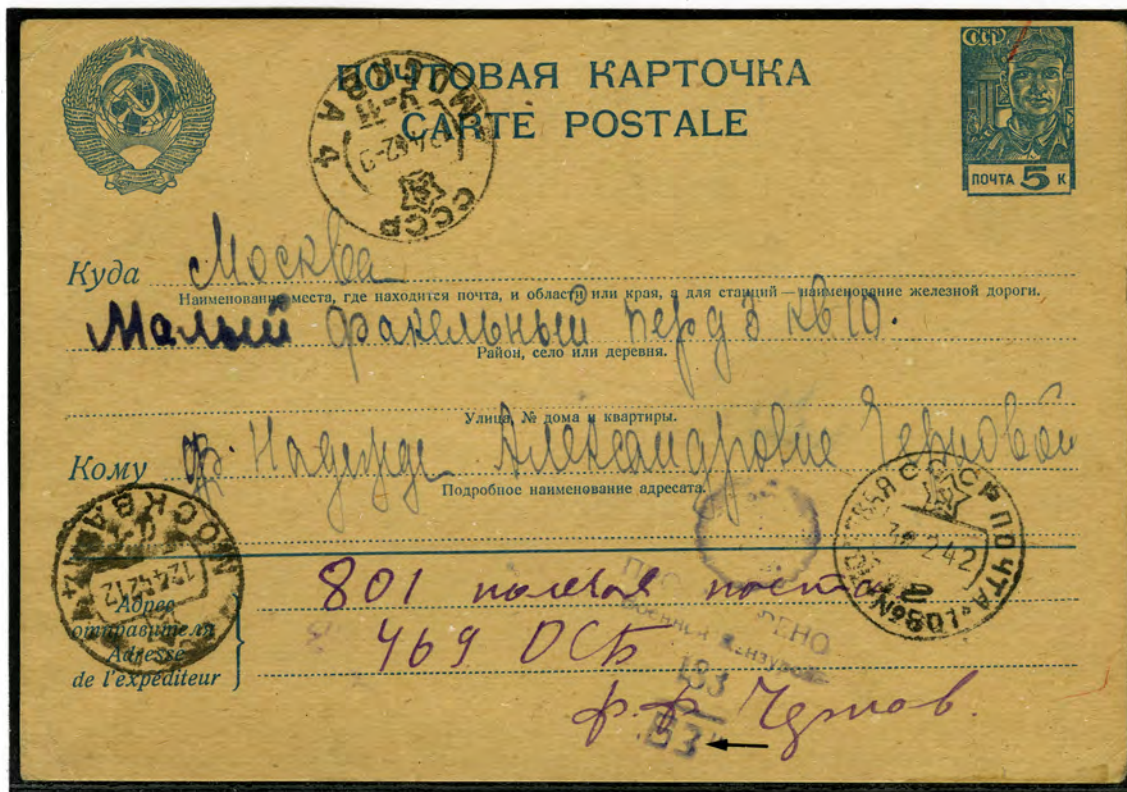 ПОЧТОВАЯ КАРТОЧКА
CARTE POSTALE
СССР
ПОЧТА 5 К
МОСКВА 4
СССР
Куда Москва
Наименование места, где находится почта, и области или края, а для станций — наименование железной дороги.
Малый Факельный пер д 3 кв 10.
Район, село или деревня.
Улица, № дома и квартиры.
Кому Надежде Александровне Черновой
Подробное наименование адресата.
МОСКВА
12 4 42 12
СССР ПОЧТА
2 42
801 полевая почта
Адрес
отправителя
Adresse
de l'expéditeur
469 ОСБ
Военной Цензурой
183
Чернов.